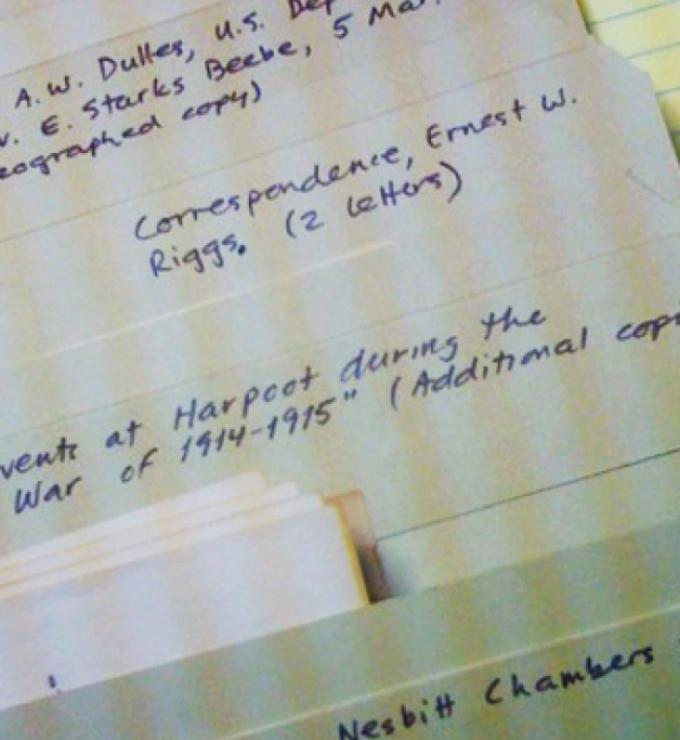 A.W. Dulles, U.S. Dep
v. E. Starks Beebe, 5 Mar.
eographed copy)
Correspondence, Ernest W.
Riggs. (2 letters)
vents at Harpoot during the
War of 1914-1915" (Additional copi
Nesbitt Chambers